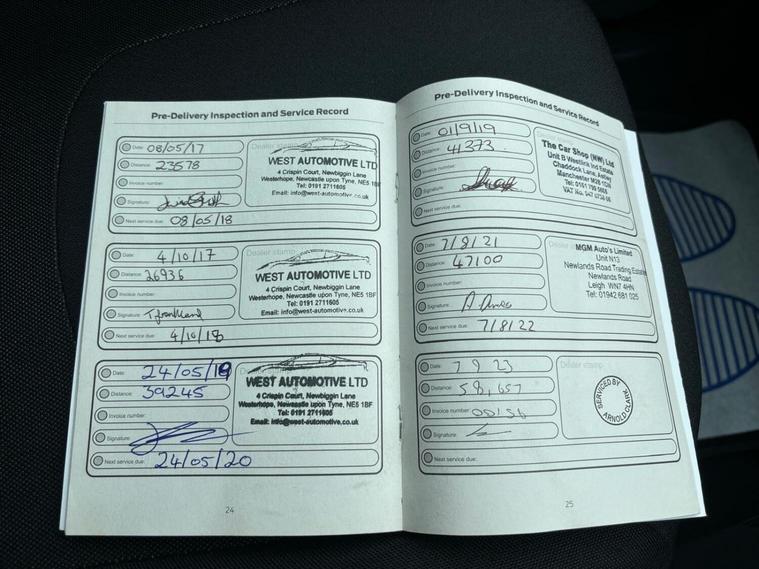 Pre-Delivery Inspection and Service Record
Date: 08/05/17
Distance: 23578
Invoice number:
Signature:
Next service due: 08/05/18
Dealer stamp
WEST AUTOMOTIVE LTD
4 Crispin Court, Newbiggin Lane
Westerhope, Newcastle upon Tyne, NE5 1BF
Tel: 0191 2711605
Email: info@west-automotive.co.uk
Date: 4/10/17
Distance: 26936
Invoice number:
Signature:
Next service due: 4/10/18
Dealer stamp
WEST AUTOMOTIVE LTD
4 Crispin Court, Newbiggin Lane
Westerhope, Newcastle upon Tyne, NE5 1BF
Tel: 0191 2711605
Email: info@west-automotive.co.uk
Date: 24/05/19
Distance: 39245
Invoice number:
Signature:
Next service due: 24/05/20
WEST AUTOMOTIVE LTD
4 Crispin Court, Newbiggin Lane
Westerhope, Newcastle upon Tyne, NE5 1BF
Tel: 0191 2711605
Email: info@west-automotive.co.uk
24
Pre-Delivery Inspection and Service Record
Date: 01/9/19
Distance: 41373
Invoice number:
Signature:
Next service due:
The Car Shop (NW) Ltd
Unit B Westlink Ind Estate
Chaddock Lane, Astley
Manchester M29
Tel: 0161 799
VAT No.
Date: 7/8/21
Distance: 47100
Invoice number:
Signature:
Next service due: 7/8/22
Dealer stamp
MGM Auto's Limited
Unit N13
Newlands Road Trading Estate
Newlands Road
Leigh WN7 4HN
Tel: 01942 681 025
Date: 7 9 23
Distance: 58,657
Invoice number: 00156
Signature:
Next service due:
Dealer stamp
SERVICED BY
ARNOLD CLARK
25